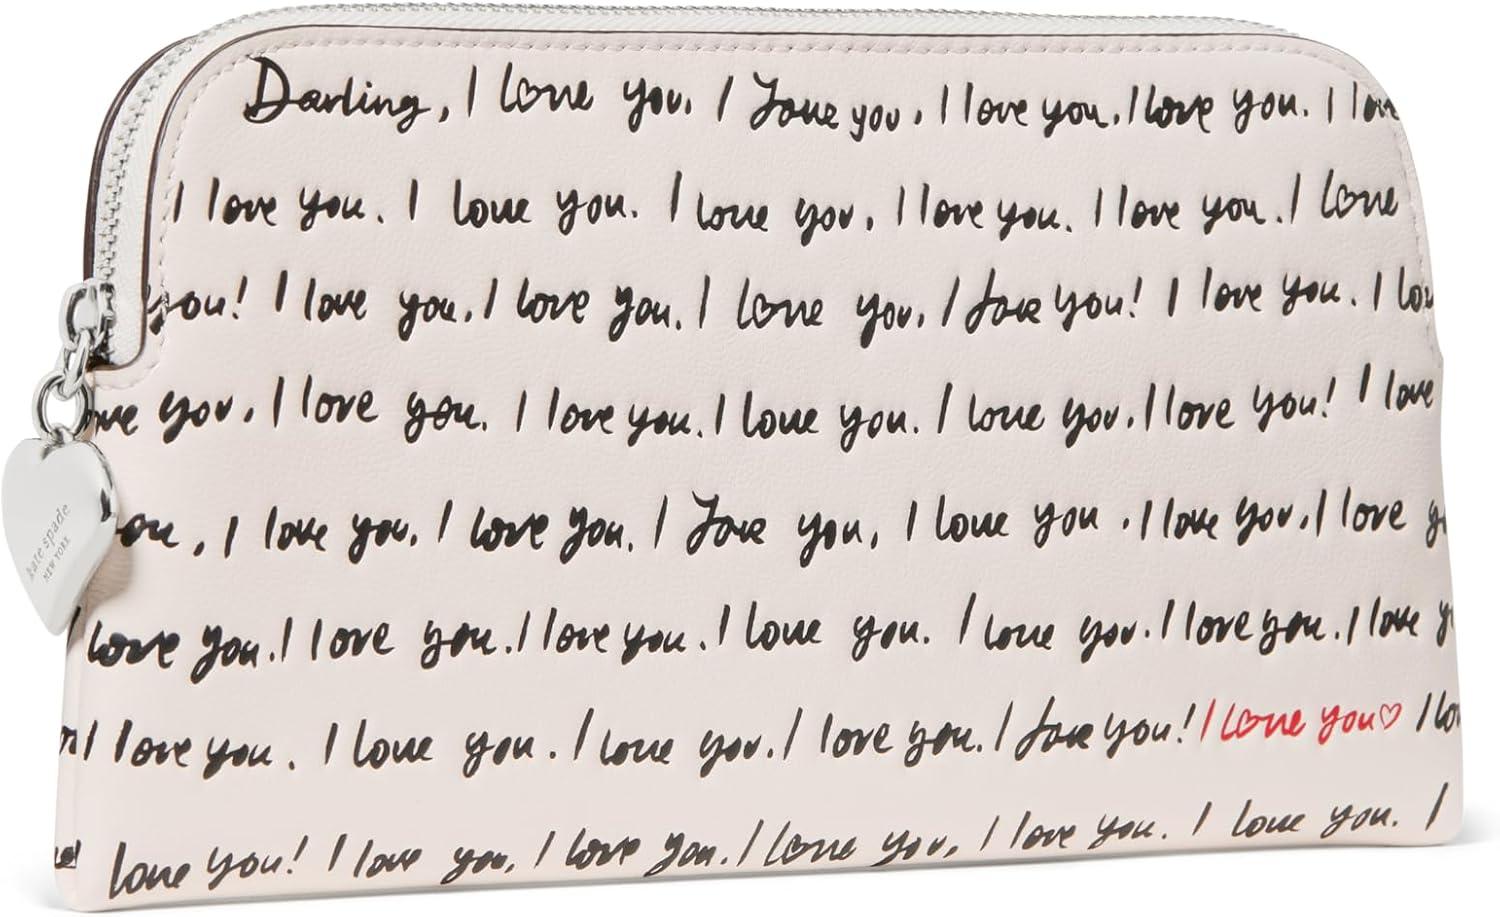 Darling, I love you. I love you. I love you. I love you. I love
I love you. I love you. I love you. I love you. I love you. I love
you! I love you. I love you. I love you. I love you! I love you. I lov
ove you. I love you. I love you. I love you. I love you. I love you! I love
ou, I love you. I love you. I love you, I love you. I love you. I love y
I love you. I love you. I love you. I love you. I love you. I love you. I love y
I love you. I love you. I love you. I love you. I love you! I love you♡ I lo
love you! I love you, I love you. I love you, I love you. I love you. I
kate spade
NEW YORK